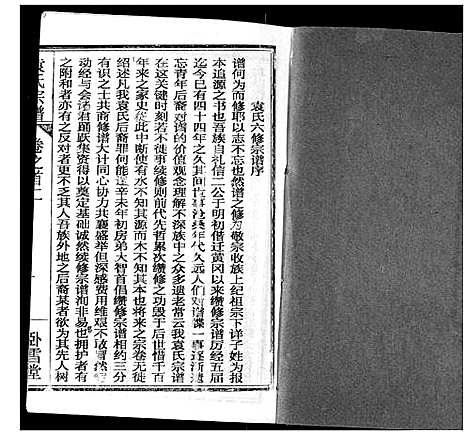 袁氏六修宗谱序
谱何为而修耶以志不忘也然谱之修为敬宗收族上纪祖宗下详子姓为报
本追源之书也吾族自礼信二公于明初偕迁黄冈以来续修宗谱历经五届
迄今已有四十四年之久其间世事沧桑年代久远人们对谱牒一事逐渐遗
忘青年后裔对谱的价值观念理解不深族中之众多遗老常云我袁氏宗谱
在这关键时刻若不徒事续修则前代先哲累次缵修之功毁于后世惜千百
年来之家史在此中断使有水不知其源而木不知其本也将来之宗卷无徒
绍述凡我袁氏后裔罪何能逭辛未年初房弟大智首倡缵修宗谱相约三分
有识之士共商修谱大计同心协力共襄盛举但深感费用维艰不敢冒然
动经与会诸君踊跃集资得以奠定基础诚然续修宗谱洵非易也拥护者有
之附和者亦有之反对者更不乏其人吾族外地之后裔某者欲为其先人树
袁氏宗谱
卷之首二
卧雪堂